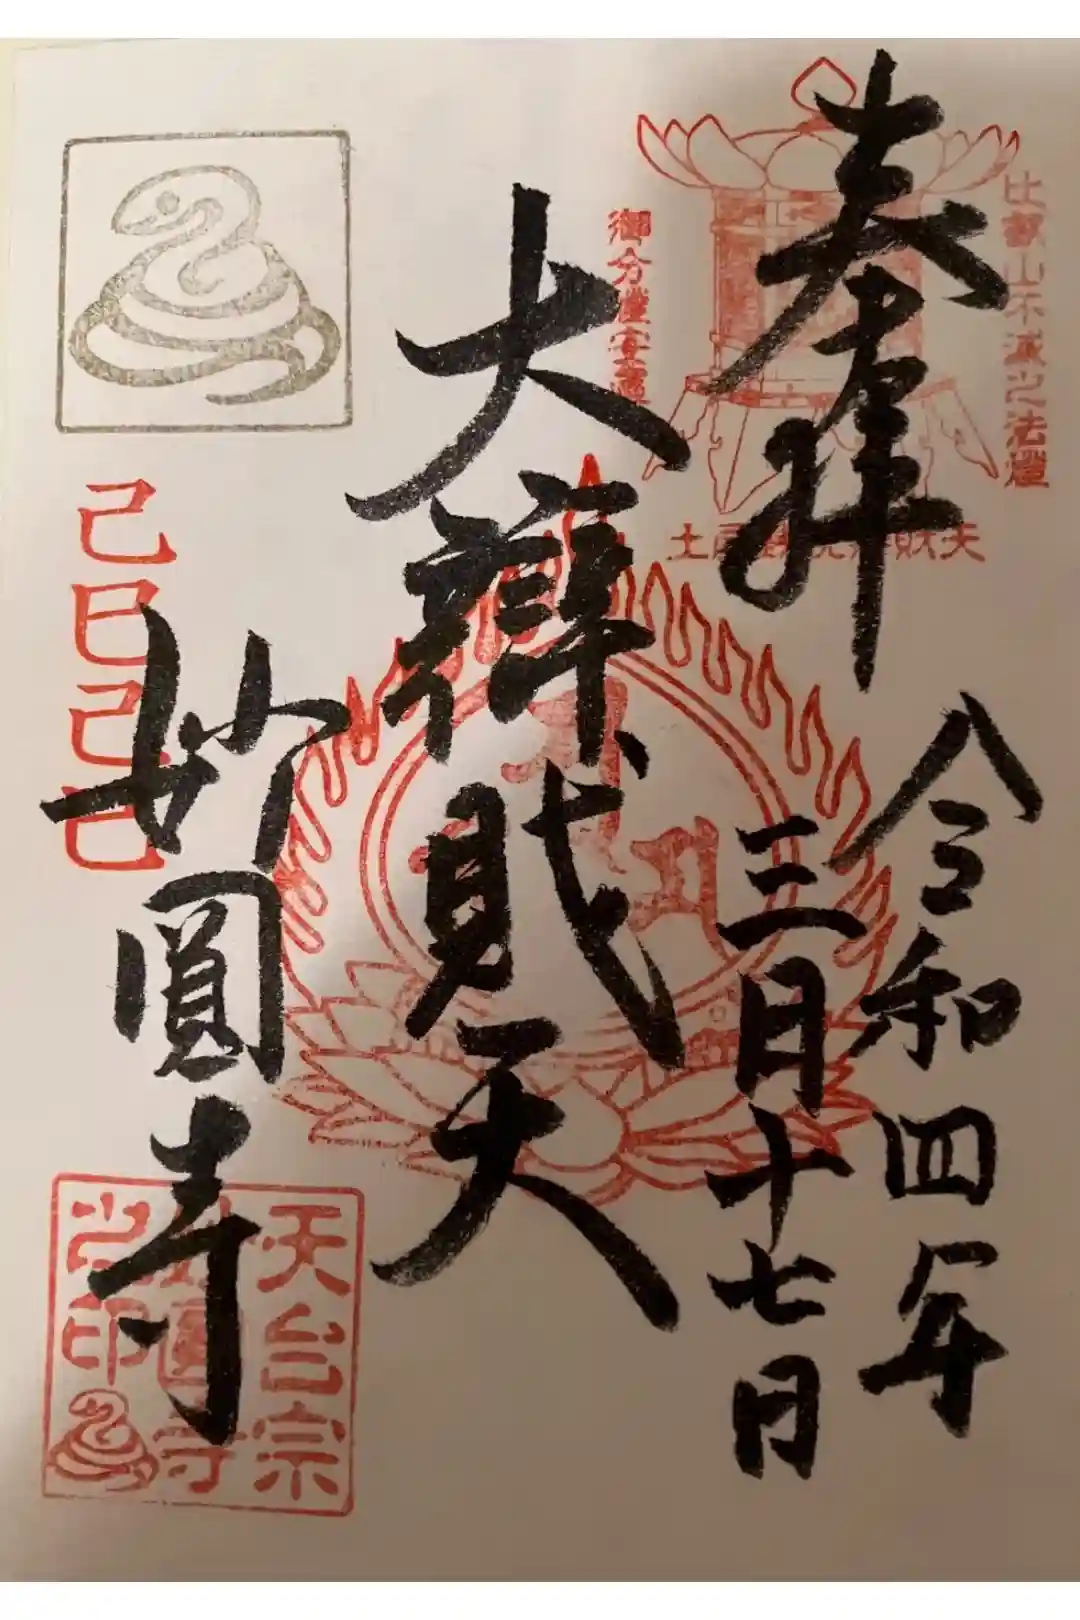 奉拝
令和四年
三月十七日
大辨財天
妙圓寺
比叡山不滅之法燈
己巳己巳
天台宗
妙圓寺
之印